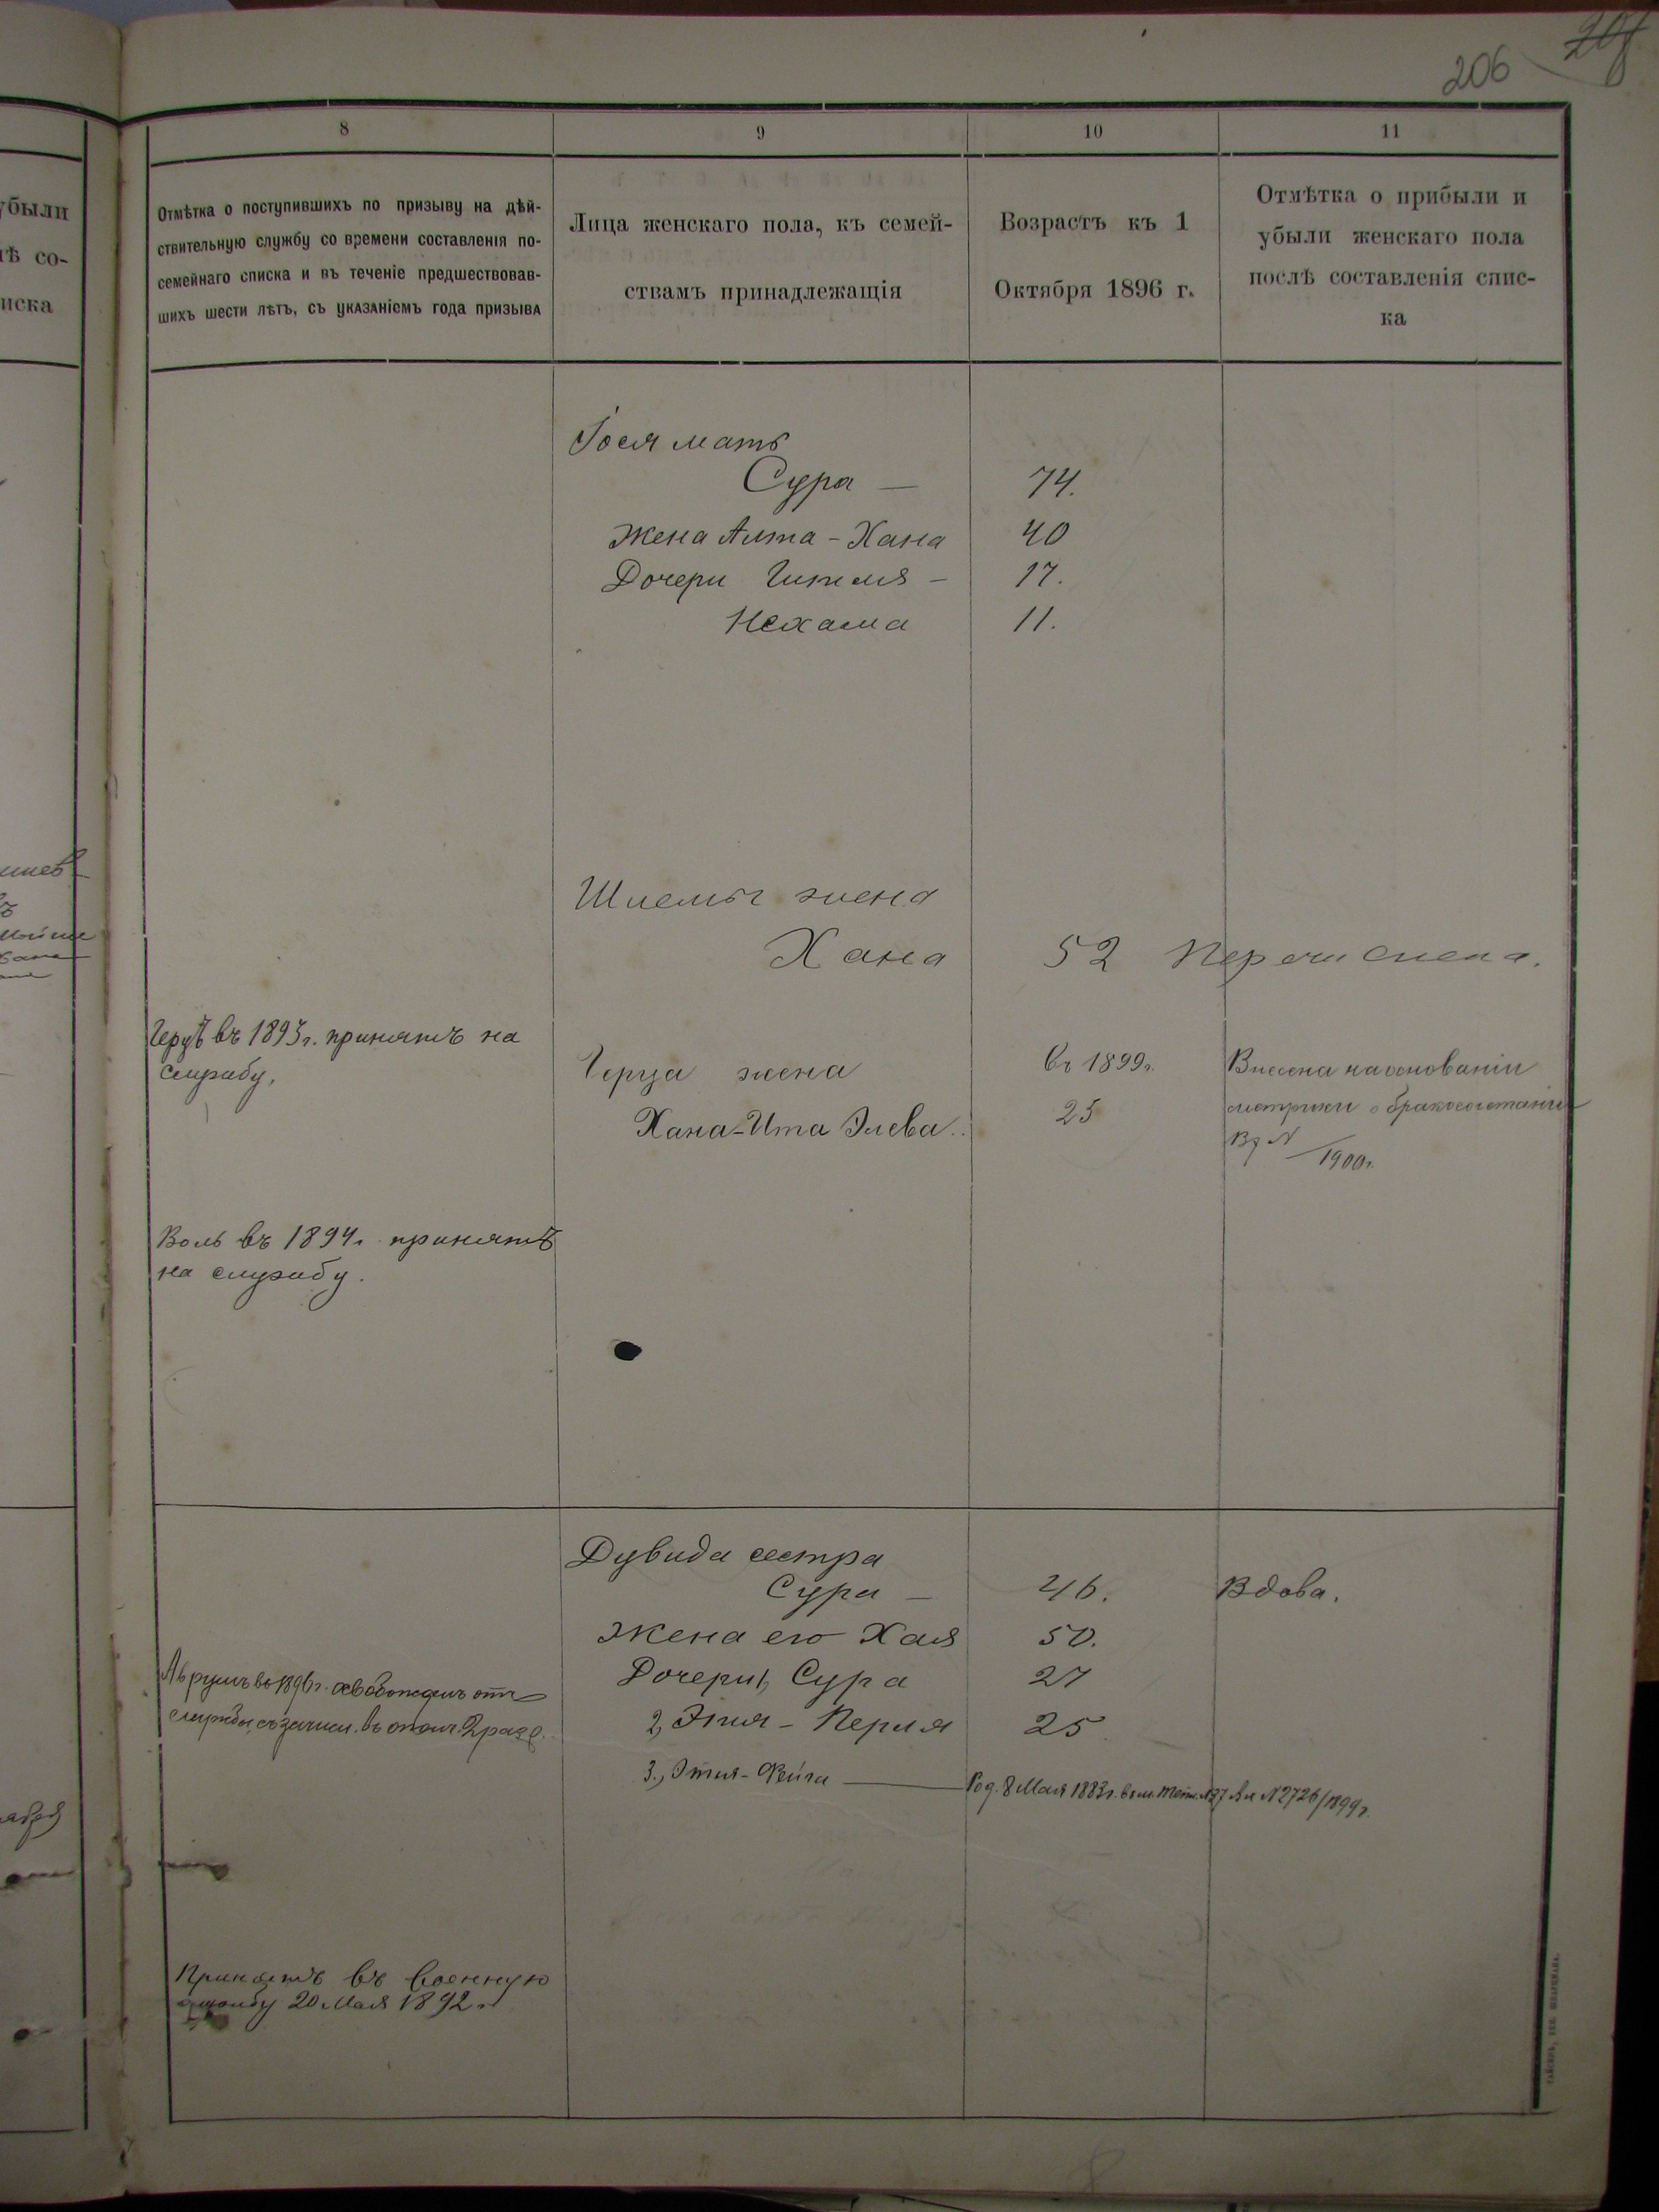 206
8
9
10
11
убыли
со-
иска
Отмѣтка о поступившихъ по призыву на дѣй-
ствительную службу со времени составленія по-
семейнаго списка и въ теченіе предшествовав-
шихъ шести лѣтъ, съ указаніемъ года призыва
Лица женскаго пола, къ семей-
ствамъ принадлежащія
Возрастъ къ 1
Октября 1896 г.
Отмѣтка о прибыли и
убыли женскаго пола
послѣ составленія спис-
ка
мать
Сура — 74.
Жена Алта - Хана 40
Дочери Гитля — 17.
Нехама 11.
Шлемы жена
Хана 52 Перечислена.
Герцъ въ 1893 г. принятъ на
службу.
Герца жена въ 1899 г. Внесена на основаніи
Хана-Ита Элева 25 метрики о бракосочетаніи
Вд №
1900 г.
Воль въ 1894 г. принятъ
на службу.
Дувида сестра
Сура — 46. Вдова.
Жена его Хая 50.
Дочери 1, Сура 27
2, Этля - Перля 25
3., Этля - Фейга — Род. 8 Мая 1883 г. №2726/1899 г.
Аврумъ въ 1896 г. освобожденъ отъ
службы съ зачисл. въ ополч. 2 разр.
Принятъ въ военную
службу 20 Мая 1892 г.